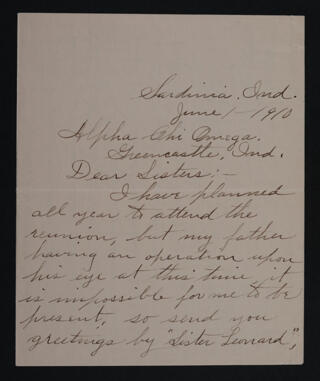 Sardinia, Ind.
June 1 - 1910
Alpha Chi Omega.
Greencastle, Ind.
Dear Sisters:-
I have planned
all year to attend the
reunion, but my father
having an operation upon
his eye at this time it
is impossible for me to be
present, so send you
greetings by "Sister Leonard",